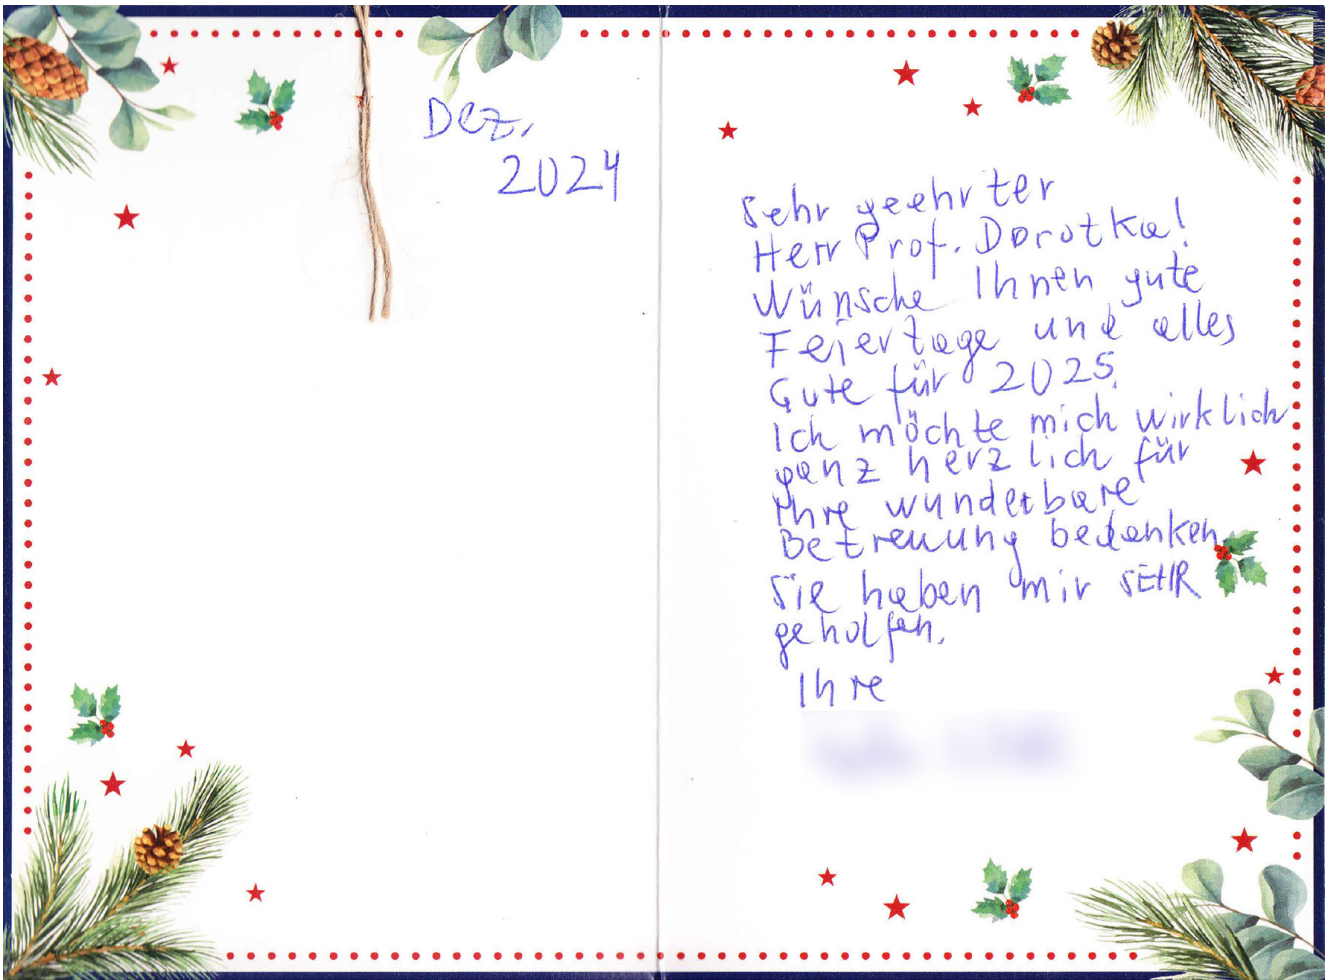 Dez.
2024
Sehr geehrter
Herr Prof. Dorotka!
Wünsche Ihnen gute
Feiertage und alles
Gute für 2025.
Ich möchte mich wirklich
ganz herzlich für
Ihre wunderbare
Betreuung bedanken.
Sie haben mir SEHR
geholfen.
Ihre